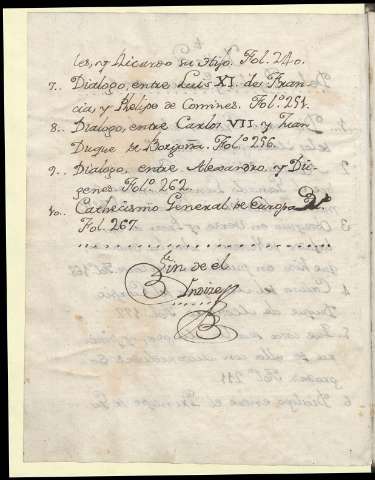 les, y Ricardo su Hijo. Fol. 240.
7.. Dialogo, entre Luis XI. de Fran-
cia, y Phelipe de Comines. Folº. 251.
8.. Dialogo, entre Carlos VII. y Juan
Duque de Borgoña. Folº. 256.
9.. Dialogo, entre Alexandro, y Dio-
genes. Folº. 262.
10.. Cathecismo General de Europa
Fol. 267.
Fin de el
Yndize